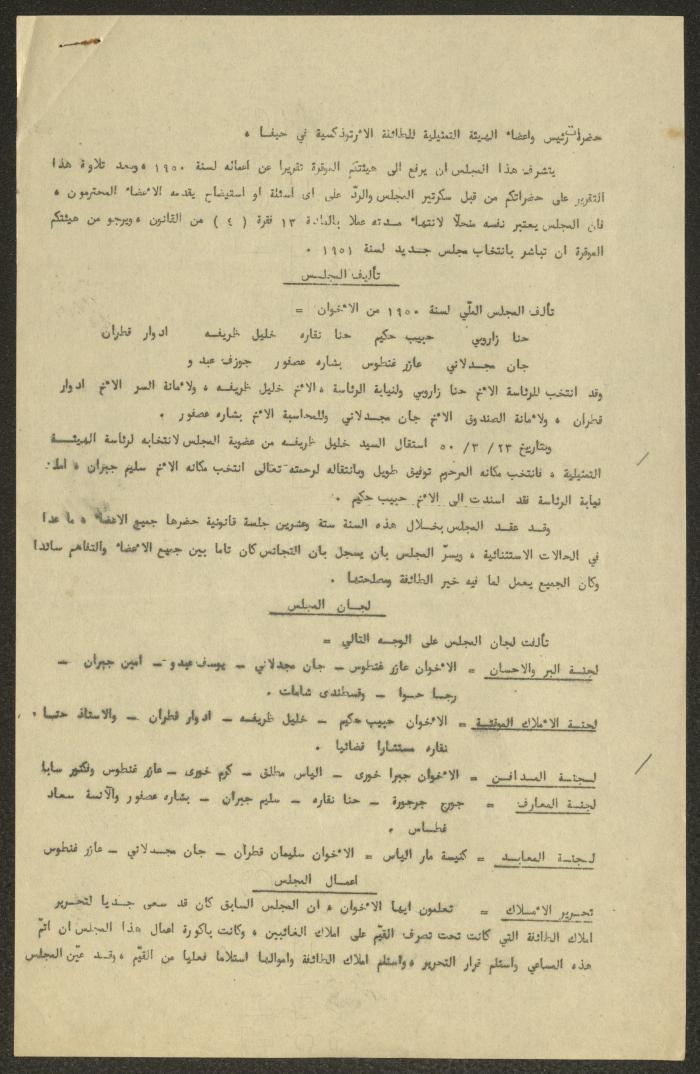 حضرات رئيس واعضاء الهيئة التمثيلية للطائفة الارثوذكسية في حيفا ،
يتشرف هذا المجلس ان يرفع الى هيئتكم الموقرة تقريرا عن اعماله لسنة ١٩٥٠ ، وبعد تلاوة هذا
التقرير على حضراتكم من قبل سكرتير المجلس والردّ على اى اسئلة او استيضاح يقدمه الاعضاء المحترمون ،
فان المجلس يعتبر نفسه منحلّا لانتهاء مدته عملا بالمادة ١٣ فقرة ( ٤ ) من القانون ، ويرجو من هيئتكم
الموقرة ان تباشر بانتخاب مجلس جديد لسنة ١٩٥١ .
تأليف المجلس
تألف المجلس الملّي لسنة ١٩٥٠ من الاخوان =
حنا زاروبي حبيب حكيم حنا نقاره خليل ظريفه ادوار قطران
جان مجدلاني عازر غنطوس بشاره عصفور جوزف عبدو
وقد انتخب للرئاسة الاخ حنا زاروبي ولنيابة الرئاسة ، الاخ خليل ظريفه ، ولامانة السر الاخ ادوار
قطران ، ولامانة الصندوق الاخ جان مجدلاني وللمحاسبة الاخ بشاره عصفور .
وبتاريخ ٢٣/ ٣/ ٥٠ استقال السيد خليل ظريفه من عضوية المجلس لانتخابه لرئاسة الهيئة
التمثيلية ، فانتخب مكانه المرحوم توفيق طويل وبانتقاله لرحمته تعالى انتخب مكانه الاخ سليم جبران ، اما
نيابة الرئاسة فقد اسندت الى الاخ حبيب حكيم .
وقد عقد المجلس بخلال هذه السنة ستة وعشرين جلسة قانونية حضرها جميع الاعضاء ، ما عدا
في الحالات الاستثنائية ، ويسرّ المجلس بان يسجل بان التجانس كان تاما بين جميع الاعضاء والتفاهم سائدا
وكان الجميع يعمل لما فيه خير الطائفة ومصلحتها .
لجان المجلس
تألفت لجان المجلس على الوجه التالي =
لجنة البر والاحسان = الاخوان عازر غنطوس - جان مجدلاني - يوسف عبدو - امين جبران -
رجا حوا - وقسطندى شامات .
لجنة الاملاك الموقتة = الاخوان حبيب حكيم - خليل ظريفه - ادوار قطران - والاستاذ حنا .
نقاره مستشارا قضائيا .
لجنة المدافن = الاخوان جبرا خورى - الياس مطلق - كرم خورى - عازر غنطوس وفكتور سابا
لجنة المعارف = جورج جرجورة - حنا نقاره - سليم جبران - بشاره عصفور والآنسة سعاد
غطاس .
لجنة المعابد = كنيسة مار الياس = الاخوان سليمان قطران - جان مجدلاني - عازر غنطوس
اعمال المجلس
تحرير الاملاك = تعلمون ايها الاخوان ، ان المجلس السابق كان قد سعى جديا لتحرير
املاك الطائفة التي كانت تحت تصرف القيّم على املاك الغائبين ، وكانت باكورة اعمال هذا المجلس ان اتمّ
هذه المساعي واستلم قرار التحرير ، واستلم املاك الطائفة واموالها استلاما فعليا من القيّم ، وقد عيّن المجلس